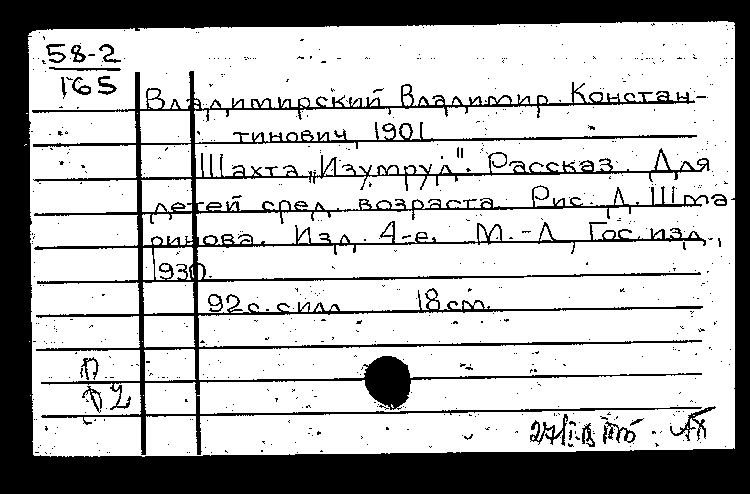 58-2
165
Владимирский, Владимир Констан-
тинович, 1901
Шахта „Изумруд". Рассказ. Для
детей сред. возраста. Рис. Д. Шма-
ринова. Изд. 4-е. М.-Л., Гос. изд.,
1930.
92 с. с илл. 18 см.